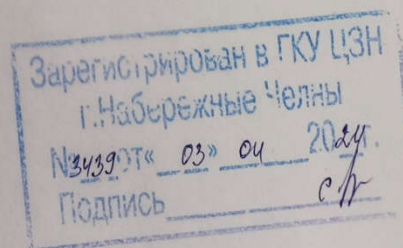 Зарегистрирован в ГКУ ЦЗН
г.Набережные Челны
№3439от«03»04 2024г.
Подпись